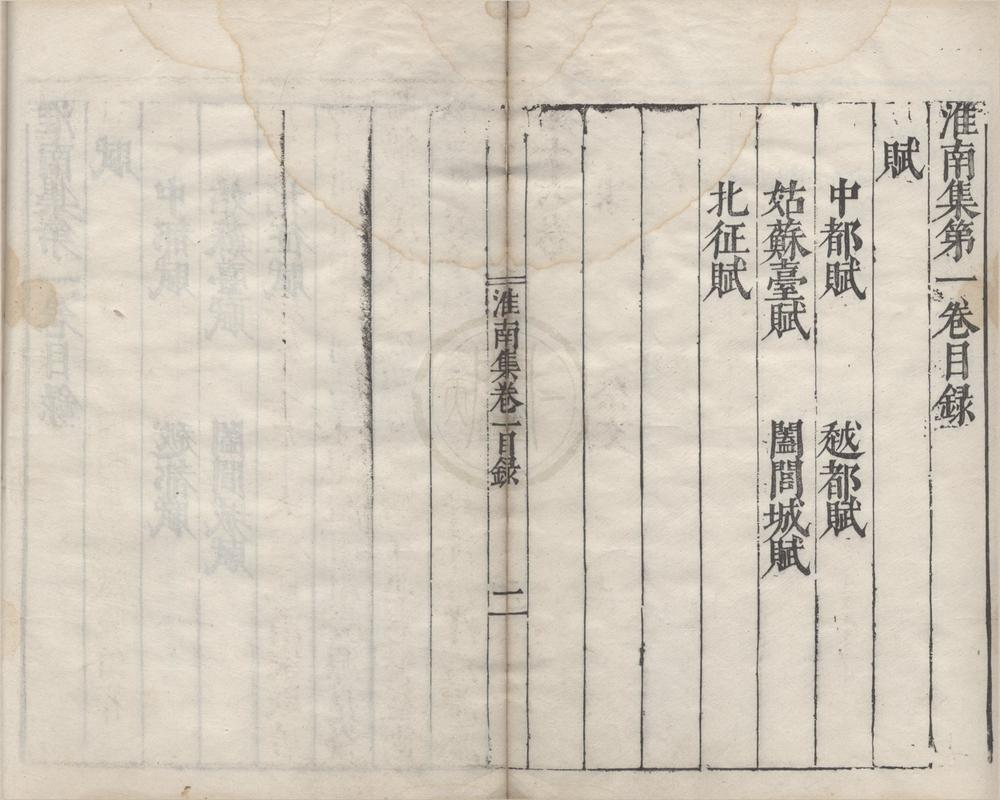 淮南集第一卷目録
賦
中都賦　越都賦
姑蘇臺賦　闔閭城賦
北征賦
淮南集卷一目録
二